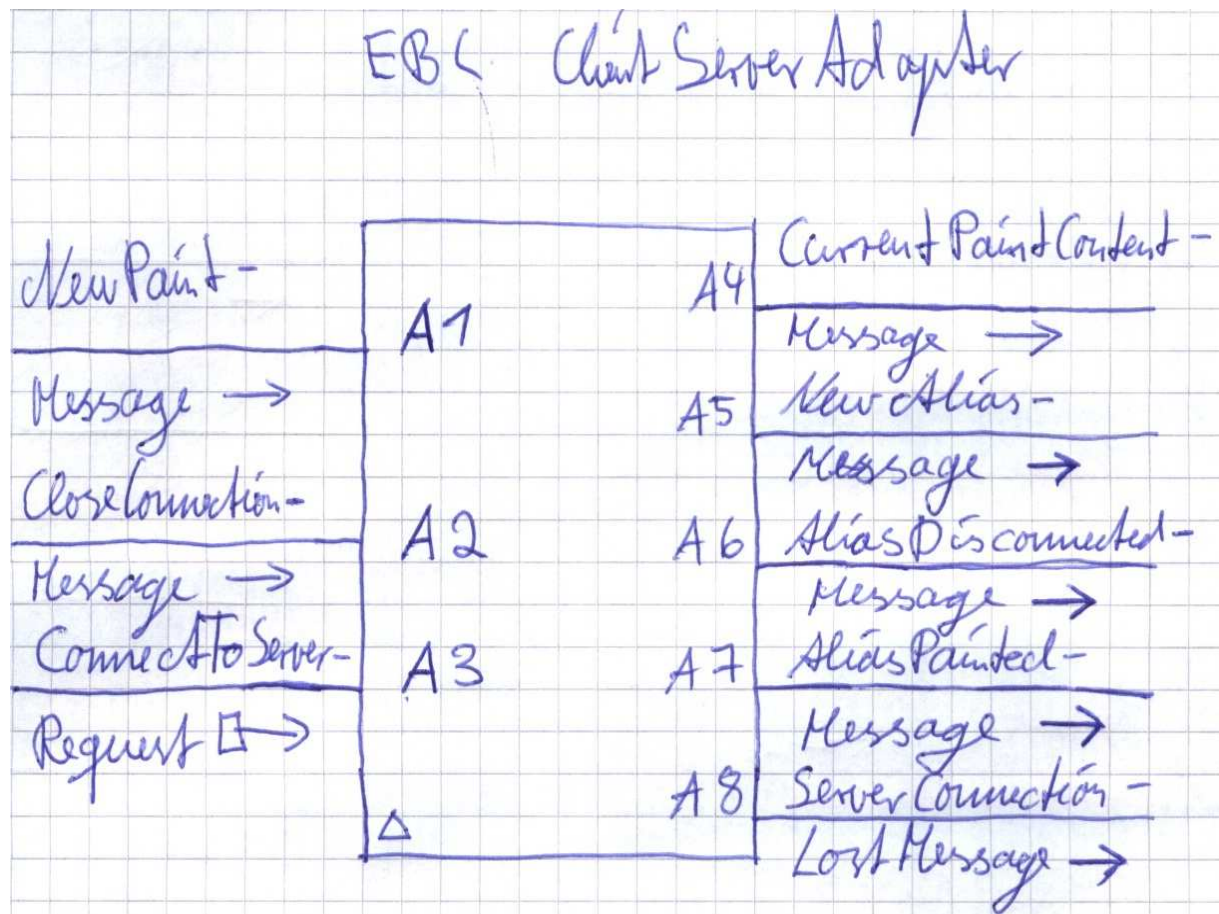 EBC ClientServerAdapter
NewPaint-
Message →
CloseConnection-
Message →
ConnectToServer-
Request →
A1
A2
A3
A4
A5
A6
A7
A8
CurrentPaintContent-
Message →
NewAlias-
Message →
AliasDisconnected-
Message →
AliasPainted-
Message →
ServerConnection-
LostMessage →